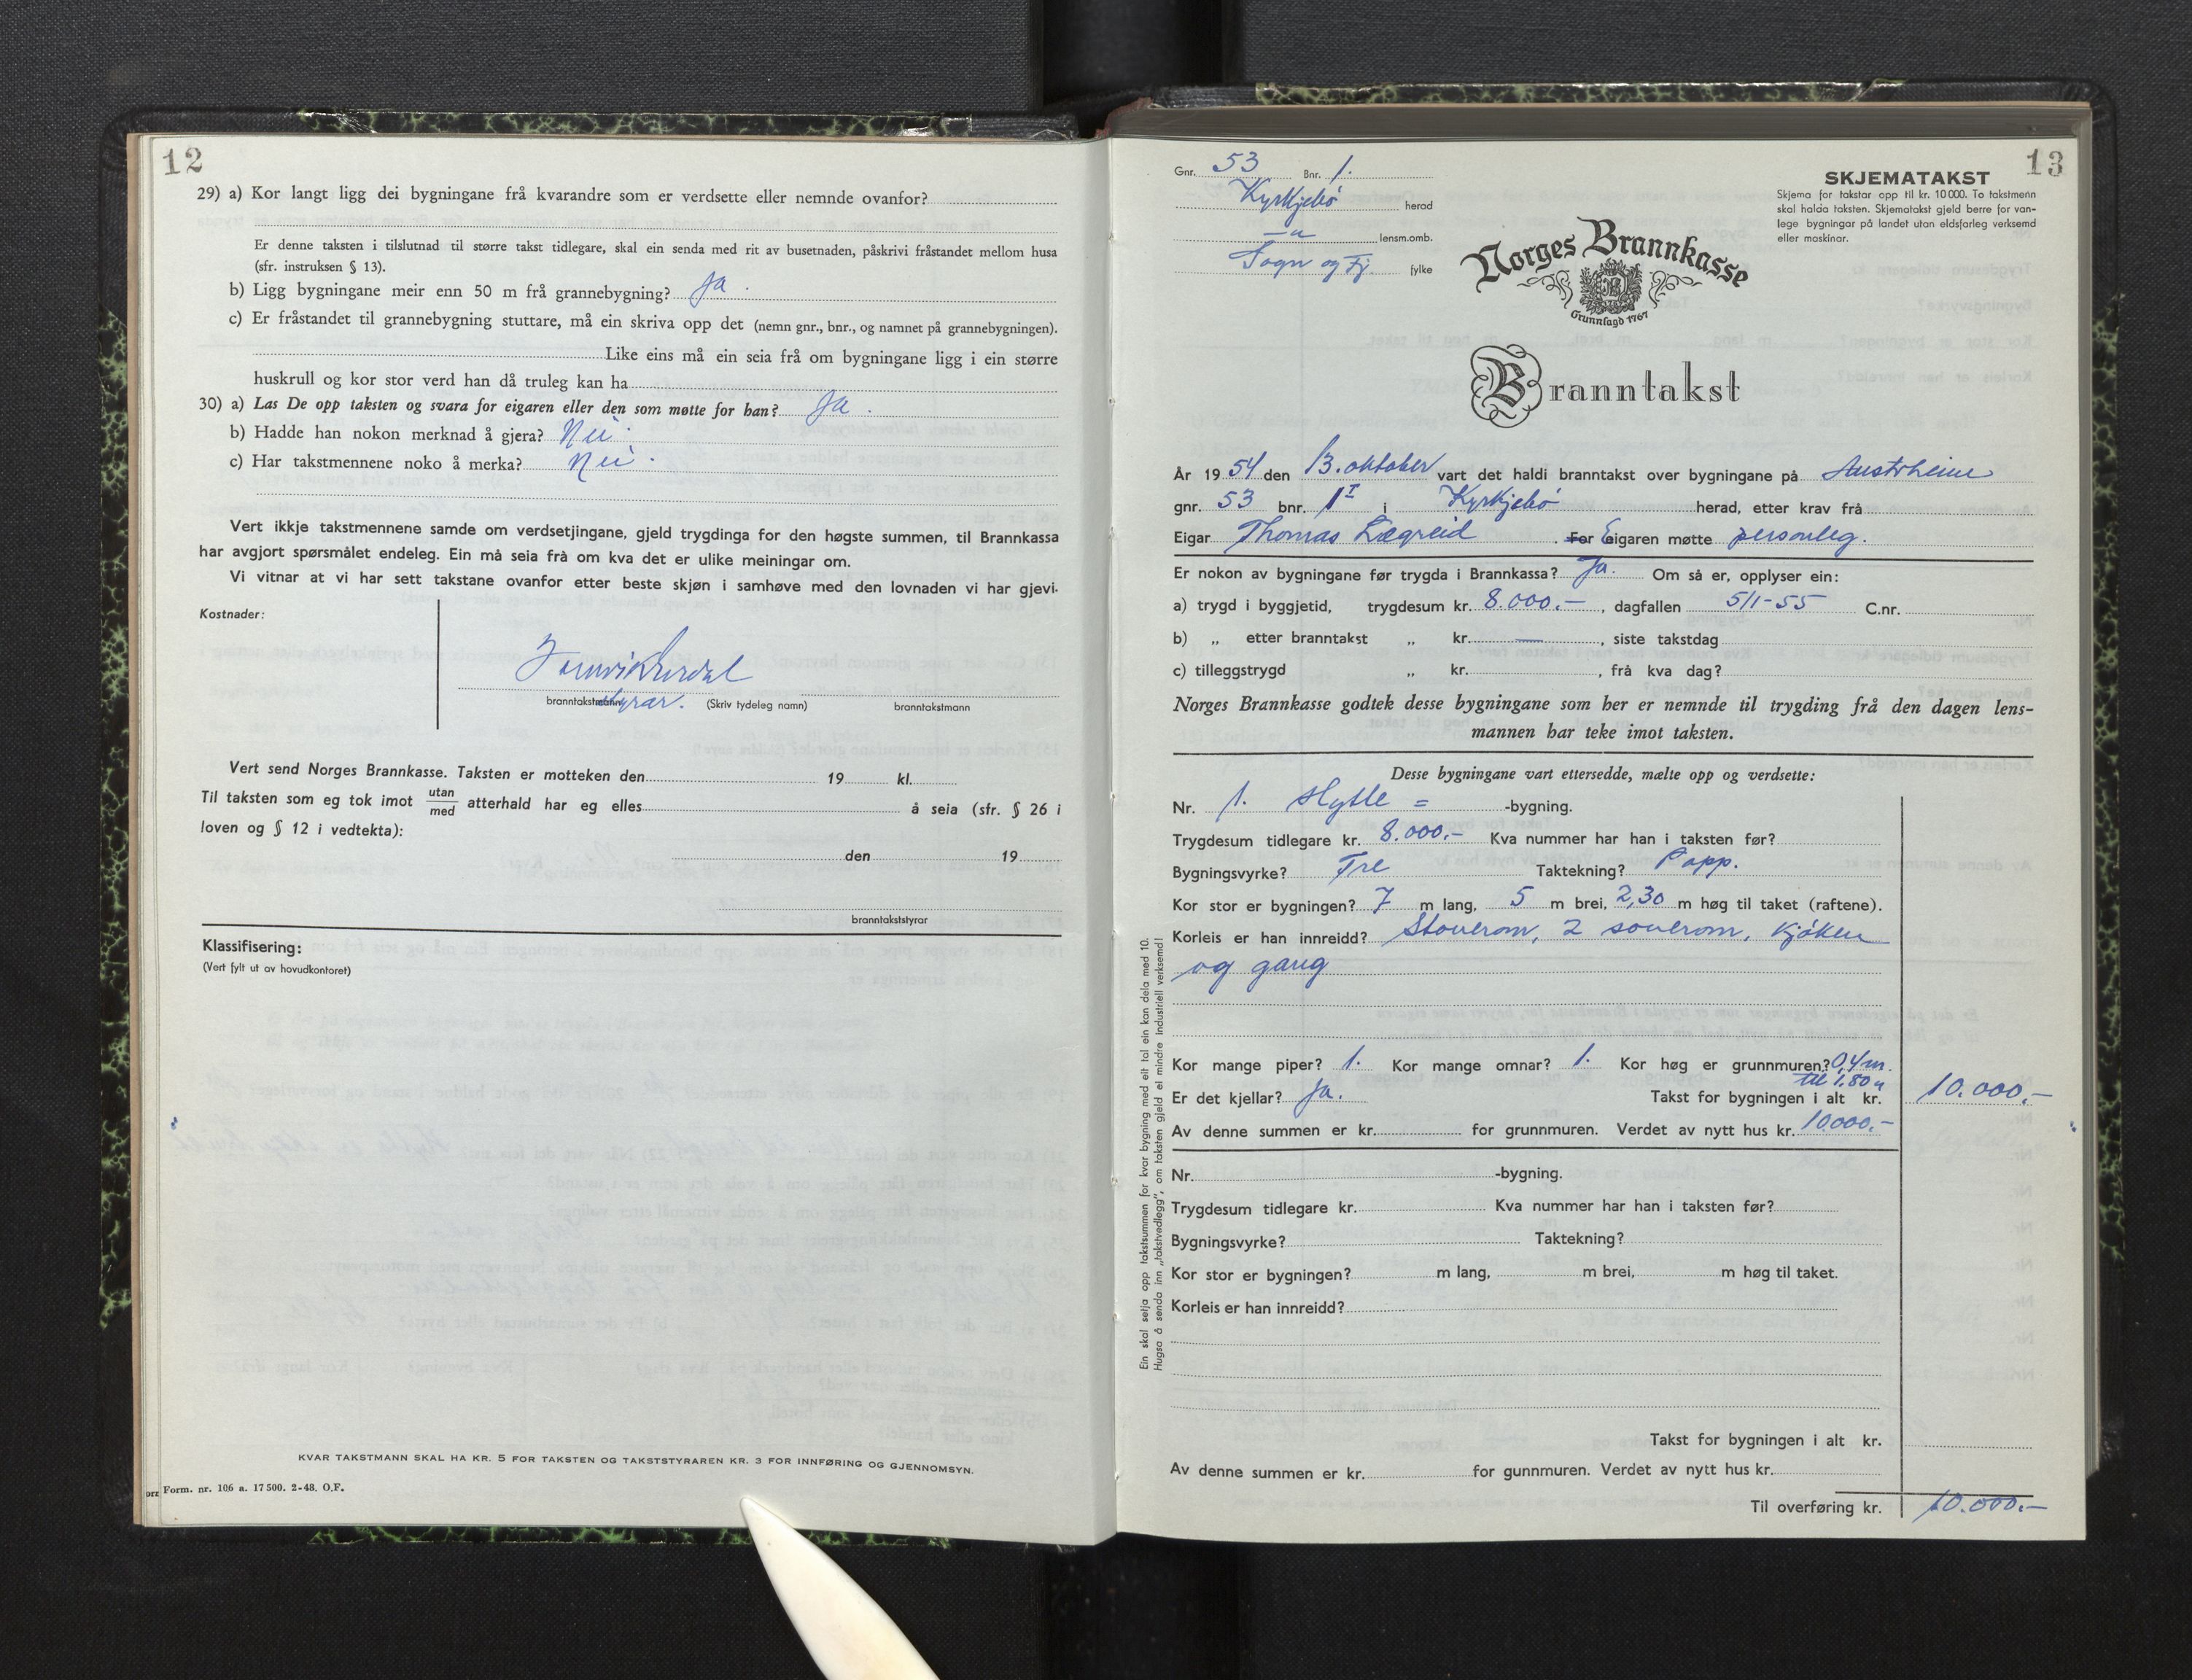 12
29) a) Kor langt ligg dei bygningane frå kvarandre som er verdsette eller nemnde ovanfor?
Er denne taksten i tilslutnad til større takst tidlegare, skal ein senda med rit av busetnaden, påskrivi fråstandet mellom husa
(sfr. instruksen § 13).
b) Ligg bygningane meir enn 50 m frå grannebygning? Ja.
c) Er fråstandet til grannebygning stuttare, må ein skriva opp det (nemn gnr., bnr., og namnet på grannebygningen).
Like eins må ein seia frå om bygningane ligg i ein større
huskrull og kor stor verd han då truleg kan ha
30) a) Las De opp taksten og svara for eigaren eller den som møtte for han? Ja.
b) Hadde han nokon merknad å gjera? Nei.
c) Har takstmennene noko å merka? Nei.
Vert ikkje takstmennene samde om verdsetjingane, gjeld trygdinga for den høgste summen, til Brannkassa
har avgjort spørsmålet endeleg. Ein må seia frå om kva det er ulike meiningar om.
Vi vitnar at vi har sett takstane ovanfor etter beste skjøn i samhøve med den lovnaden vi har gjevi.
Kostnader:
branntakstmann styrar. (Skriv tydeleg namn) branntakstmann
Vert send Norges Brannkasse. Taksten er motteken den 19 kl.
Til taksten som eg tok imot utan/med atterhald har eg elles å seia (sfr. § 26 i
loven og § 12 i vedtekta):
den 19
branntakststyrar
Klassifisering:
(Vert fylt ut av hovudkontoret)
KVAR TAKSTMANN SKAL HA KR. 5 FOR TAKSTEN OG TAKSTSTYRAREN KR. 3 FOR INNFØRING OG GJENNOMSYN.
Form. nr. 106 a. 17 500. 2-48. O.F.
13
Gnr. 53 Bnr. 1.
Kyrkjebø herad
— " — lensm.omb.
Sogn og Fj. fylke
SKJEMATAKST
Skjema for takstar opp til kr. 10 000. To takstmenn
skal halda taksten. Skjematakst gjeld berre for van-
lege bygningar på landet utan eldsfarleg verksemd
eller maskinar.
Norges Brannkasse
Grunnlagd 1767
Branntakst
År 1954 den 13. oktober vart det haldi branntakst over bygningane på Austrheim
gnr. 53 bnr. 1 I i Kyrkjebø herad, etter krav frå
Eigar Thomas Lægreid. For Eigaren møtte personleg.
Er nokon av bygningane før trygda i Brannkassa? Ja. Om så er, opplyser ein:
a) trygd i byggjetid, trygdesum kr. 8.000.-, dagfallen 5/1-55 C.nr.
b) „ etter branntakst „ kr. —, siste takstdag
c) tilleggstrygd „ kr. , frå kva dag?
Norges Brannkasse godtek desse bygningane som her er nemnde til trygding frå den dagen lens-
mannen har teke imot taksten.
Desse bygningane vart ettersedde, mælte opp og verdsette:
Nr. 1. Hytte = -bygning.
Trygdesum tidlegare kr. 8.000.- Kva nummer har han i taksten før?
Bygningsvyrke? Tre Taktekning? Papp.
Kor stor er bygningen? 7 m lang, 5 m brei, 2,30 m høg til taket (raftene).
Korleis er han innreidd? Stoverom, 2 soverom, kjøken
og gang
Kor mange piper? 1. Kor mange omnar? 1. Kor høg er grunnmuren? 0,4 m.
til 1,80 "
Er det kjellar? Ja. Takst for bygningen i alt kr. 10.000.-
Av denne summen er kr. for grunnmuren. Verdet av nytt hus kr. 10.000.-
Nr. -bygning.
Trygdesum tidlegare kr. Kva nummer har han i taksten før?
Bygningsvyrke? Taktekning?
Kor stor er bygningen? m lang, m brei, m høg til taket.
Korleis er han innreidd?
Takst for bygningen i alt kr.
Av denne summen er kr. for gunnmuren. Verdet av nytt hus kr.
Til overføring kr. 10.000.-
Ein skal setja opp takstsummen for kvar bygning med eit tal ein kan dela med 10.
Hugsa å senda inn „takstvedlegg", om taksten gjeld ei mindre industriell verksemd!